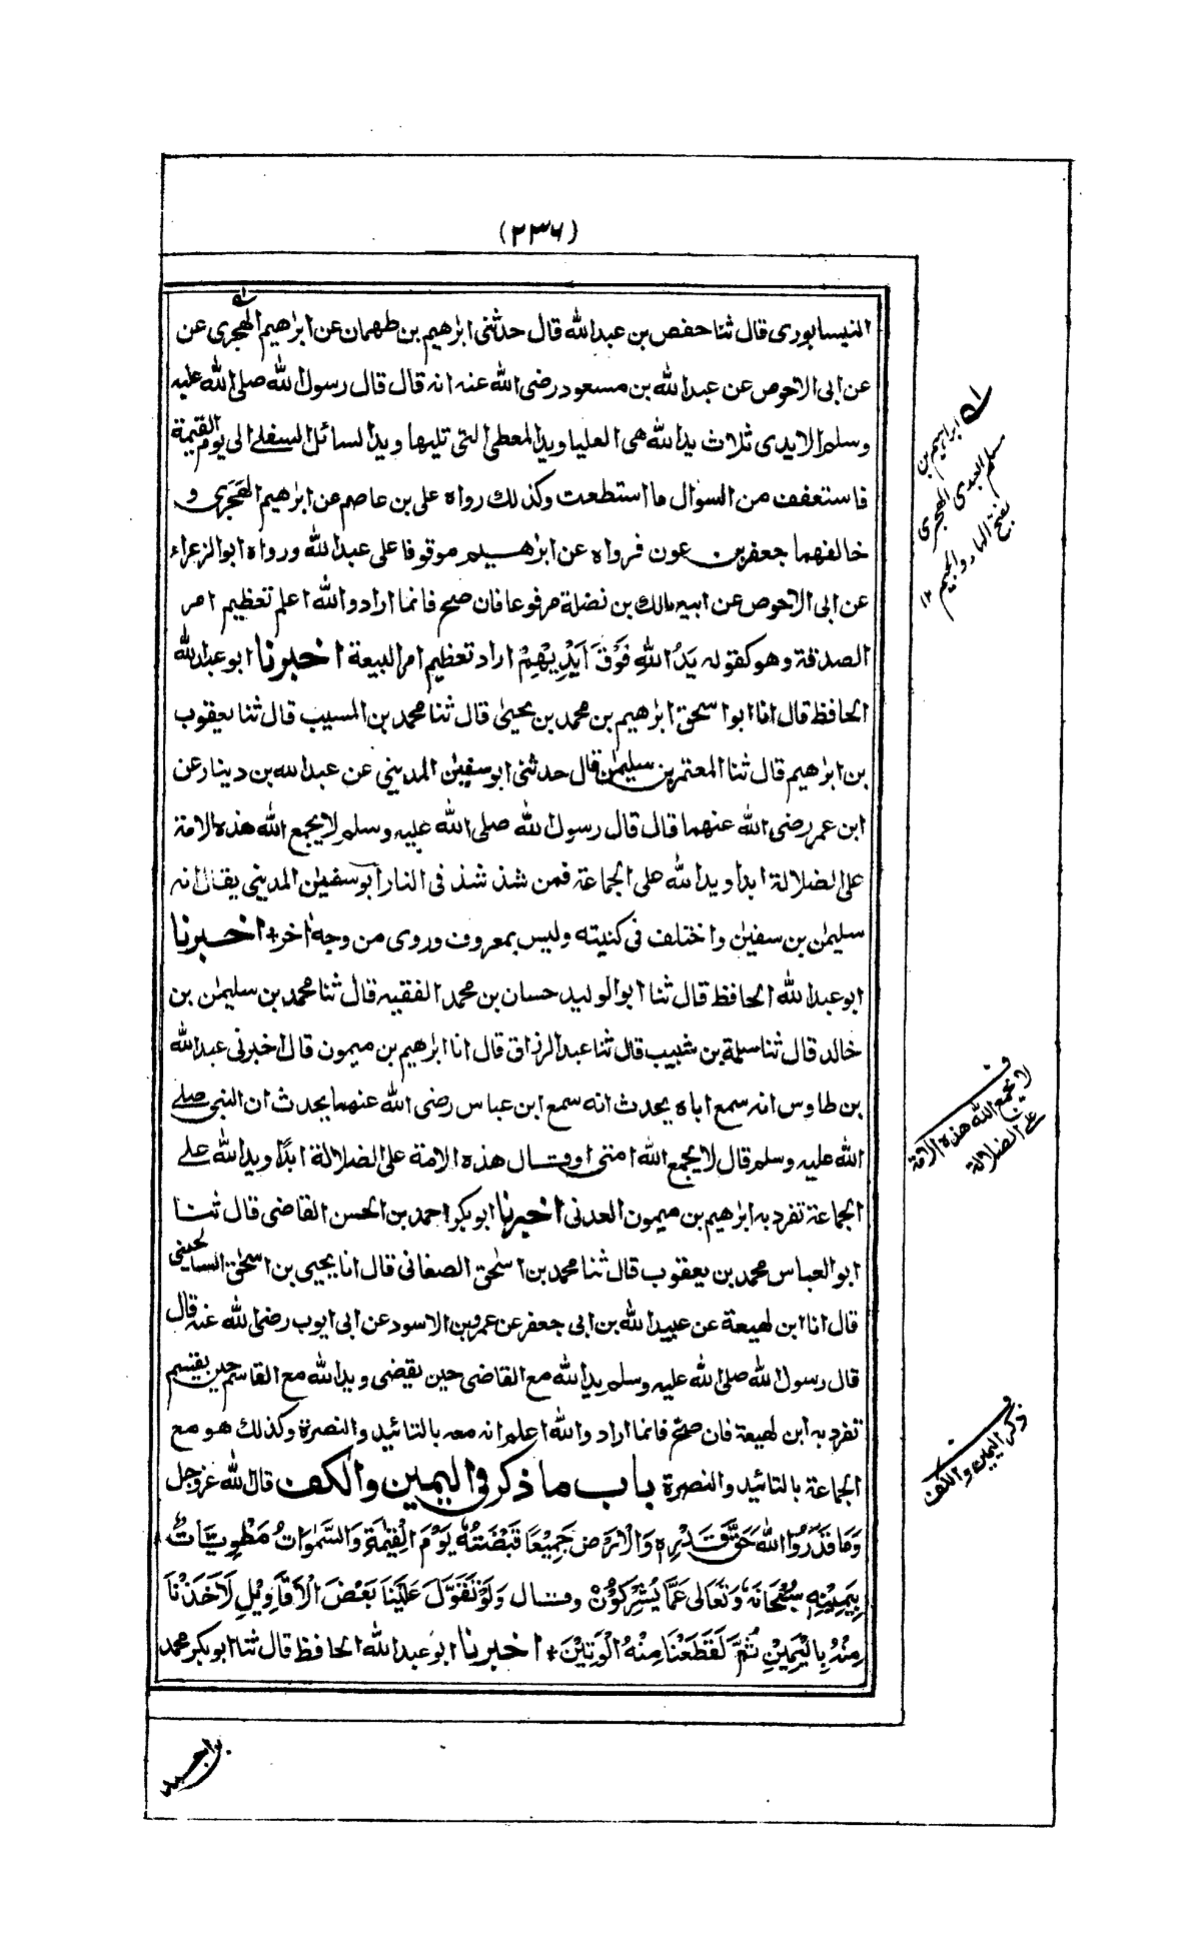 (٢٣٦)
النيسابورى قال ثنا حفص بن عبدالله قال حدثنى ابرٰهيم بن طهمان عن ابرٰهيم الهجرى عن
عن ابى الاحوص عن عبدالله بن مسعود رضى الله عنه انه قال قال رسول الله صلى الله عليه
وسلم الايدى ثلاث يد الله هى العليا ويد المعطى التى تليها ويد السائل السفلے الى يوم القيٰمة
فاستعفف من السؤال ما استطعت وكذلك رواه على بن عاصم عن ابرٰهيم الهَجَرى و
خالفهما جعفر بن عون فرواه عن ابرٰهيم موقوفا على عبدالله ورواه ابوالزعراء
عن ابى الاحوص عن ابيه مالك بن نضلة مرفوعا فان صح فانما اراد والله اعلم تعظيم امر
الصدقة وهو كقوله يَدُ اللهِ فَوْقَ اَيْدِيْهِمْ اراد تعظيم امر البيعة اخبرنا ابو عبدالله
الحافظ قال انا ابو اسحٰق ابرٰهيم بن محمد بن يحيىٰ قال ثنا محمد بن المسيب قال ثنا يعقوب
بن ابرٰهيم قال ثنا المعتمر بن سليمٰن قال حدثنى ابو سفيٰن المدينى عن عبدالله بن دينار عن
ابن عمر رضى الله عنهما قال قال رسول الله صلى الله عليه وسلم لا يجمع الله هذه الامة
على الضلالة ابدا ويد الله على الجماعة فمن شذ شذ فى النار ابو سفيٰن المدينى يقال انه
سليمٰن بن سفيٰن واختلف فى كنيته وليس بمعروف وروى من وجه اٰخر + اخبرنا
ابو عبدالله الحافظ قال ثنا ابو الوليد حسان بن محمد الفقيه قال ثنا محمد بن سليمٰن بن
خالد قال ثنا سلمة بن شبيب قال ثنا عبد الرزاق قال انا ابرٰهيم بن ميمون قال اخبرنى عبدالله
بن طاوس انه سمع اباه يحدث انه سمع ابن عباس رضى الله عنهما يحدث ان النبى صلے
الله عليه وسلم قال لا يجمع الله امتى او قال هذه الامة على الضلالة ابدًا ويد الله علے
الجماعة تفرد به ابرٰهيم بن ميمون العدنى اخبرنا ابو بكر احمد بن الحسن القاضى قال ثنا
ابو العباس محمد بن يعقوب قال ثنا محمد بن اسحٰق الصغانى قال انا يحيى بن اسحٰق السالحينى
قال انا ابن لهيعة عن عبيد الله بن ابى جعفر عن عمرو بن الاسود عن ابى ايوب رضى الله عنه قال
قال رسول الله صلى الله عليه وسلم يد الله مع القاضى حين يقضى ويد الله مع القاسم حين يقسم
تفرد به ابن لهيعة فان صح فانما اراد والله اعلم انه معه بالتائيد والنصرة وكذلك هو مع
الجماعة بالتائيد والنصرة باب ما ذكر فى اليمين والكف قال الله عز وجل
وَمَا قَدَرُوا اللهَ حَقَّ قَدْرِهٖ وَالْاَرْضُ جَمِيْعًا قَبْضَتُهٗ يَوْمَ الْقِيٰمَةِ وَالسَّمٰوَاتُ مَطْوِيّٰتٌۢ
بِيَمِيْنِهٖ سُبْحَانَهٗ وَتَعَالٰى عَمَّا يُشْرِكُوْنَ وقال وَلَوْ تَقَوَّلَ عَلَيْنَا بَعْضَ الْاَقَاوِيْلِ لَاَخَذْنَا
مِنْهُ بِالْيَمِيْنِ ثُمَّ لَقَطَعْنَا مِنْهُ الْوَتِيْنَ + اخبرنا ابو عبدالله الحافظ قال ثنا ابو بكر محمد
ابراہیم بن
مسلم العبدى الهجرى
بفتح الهاء والجيم ١٢
ف
لا يجمع الله هذه الامة
على الضلالة
ف
ذكر اليمين والكف